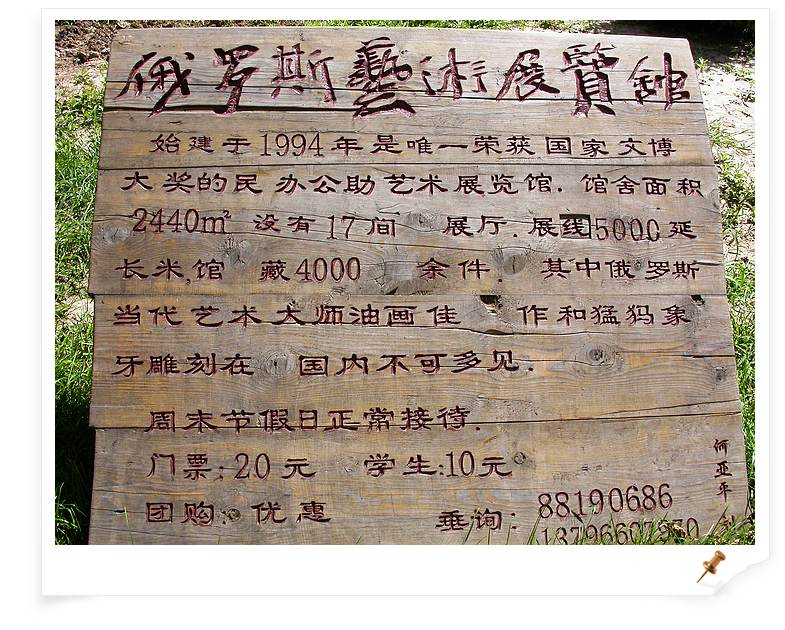 俄罗斯藝術展覽館
始建于1994年是唯一荣获国家文博
大奖的民办公助艺术展览馆.馆舍面积
2440m² 没有17间 展厅.展线5000延
长米,馆 藏4000 余件. 其中俄罗斯
当代艺术大师油画佳 作和猛犸象
牙雕刻在 国内不可多见.
周末节假日正常接待.
门票:20元 学生:10元
团购:优惠 垂询:88190686
何亚平